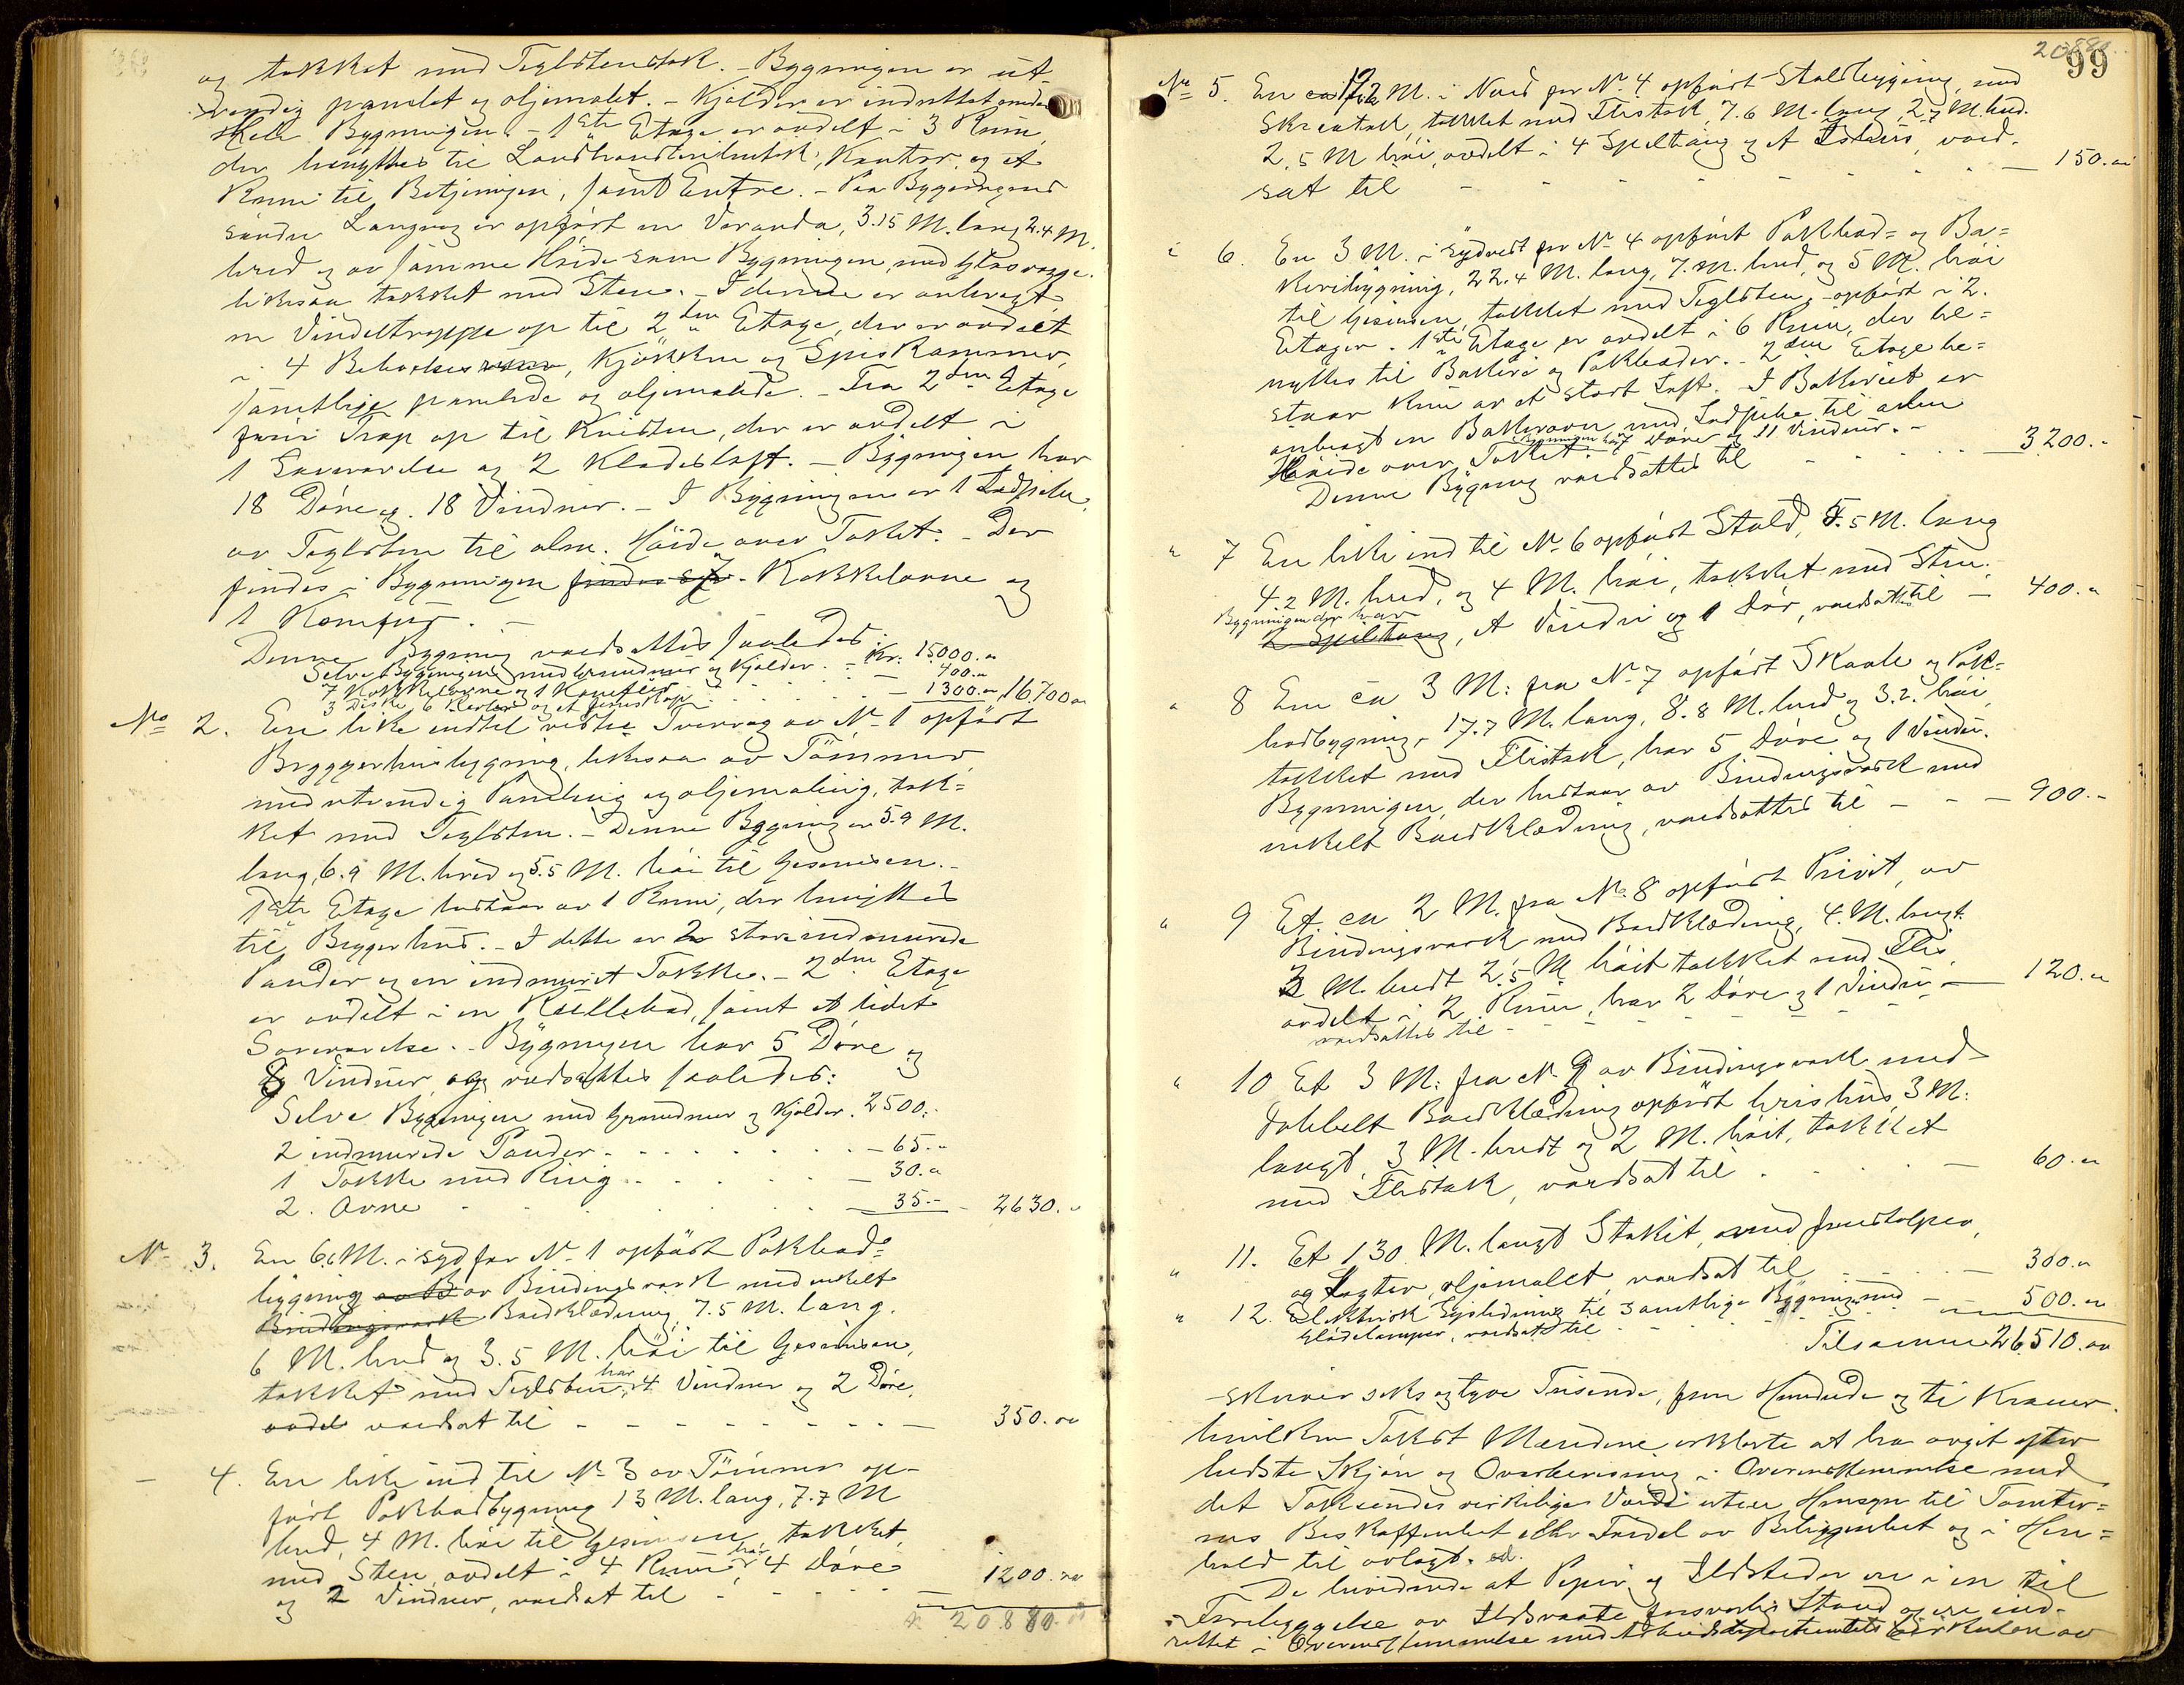 og tækket med Teglstenstak. - Bygningen er ut-
vendig panelet og oljemalet. - Kjelder er indrettet under
hele Bygningen. - 1ste Etage er avdelt i 3 Rum,
der benyttes til Landhandleributik, Kontor og et
Rum til Betjeningen, samt Entre. - Paa Bygningens
søndre Langvæg er opført en Veranda, 3.15 M. lang 2.4 M.
bred og av samme Høide som Bygningen, med Glasvægge.
likesaa tækket med Sten. - I denne er anbragt
en Vindeltrappe op til 2den Etage, der er avdelt
i 4 Beboelsesrum, Kjøkken og Spiskammer,
samtlige panelede og oljemalede. - Fra 2den Etage
fører Trap op til Kvisten, der er avdelt i
1 Soveværelse og 2 Klædesloft. - Bygningen har
18 Døre og 18 Vinduer. - I Bygningen er 1 Lodpibe
av Teglsten til alm. Høide over Taket. - Der
findes i Bygningen findes og 7 Kakkelovne og
1 Komfur. -
Denne Bygning værdsættes saaledes:
Selve Bygningen med Grundmur og Kjelder. - Kr. 15000.00
7 Kakkelovne og 1 Komfur - 400.00
3 Diske 6 Reoler og et - 1300.00 16700.00
No 2. En like indtil vestre Tvervæg av No 1 opført
Bryggerhusbygning, likesaa av Tømmer
med utvendig Paneling og oljemaling, tæk-
ket med Teglsten. - Denne Bygning er 5.9 M.
lang, 6.9 M. bred og 5.5 M. høi til Gesimsen. -
1ste Etage bestaar av 1 Rum, der benyttes
til Bryggerhus. - I dette er 2 store indmurede
Pander og en indmuret Takke. - 2den Etage
er avdelt i en Rullebod, samt et lidet
Soveværelse. - Bygningen har 5 Døre og
8 Vinduer og værdsættes saaledes:
Selve Bygningen med Grundmur og Kjelder. 2500.-
2 indmurede Pander - 65.-
1 Takke med Ring - 30.-
2. Ovne - 35.- - 2630.-
No 3. En 6.6 M. i syd for No 1 opført Pakbod-
bygning av B av Bindingsværk med enkelt
Bindingsværk Bordklædning, 7.5 M. lang.
6 M. bred og 3.5 M. høi til Gesimsen,
tækket med Teglsten, har 4 Vinduer og 2 Døre,
avdel værdsat til - 350.00
- 4. En like ind til No 3 av Tømmer op-
ført Pakbodbygning 13 M. lang, 7.7 M
bred, 4 M. høi til Gesimsen, tækket
med Sten avdelt i 4 Rum, har 4 Døre
og 2 Vinduer, værdsat til - 1200.00
20880.00
20880.
99
No 5. En ca 12 M. i Nord for No 4 opført Staldbygning, med
Skraatak, tækket med Flistak, 7.6 M. lang, 2.7 M. bred.
2.5 M høi, avdelt i 4 Spiltaug og et, værd-
sat til - 150.00
" 6. En 3 M. i sydvest for No 4 opført Pakbod- og Ba-
keribygning, 22.4 M. lang, 7. M. bred, og 5 M. høi
til Gesimsen, tækket med Teglsten, - opført i 2.
Etager. 1ste Etage er avdelt i 6 Rum, der be-
nyttes til Bakeri og Pakboder. - 2den Etage be-
staar kun av et stort Loft. - I Bakeriet er
anbragt en Bakerovn med Lodpibe til alm
Høide over Taket. - Bygningen har 7 Døre og 11 Vinduer. -
Denne Bygning værdsættes til - 3200.-
" 7 En like ind til No 6 opført Stald, 5.5 M. lang
4.2 M. bred, og 4 M. høi, tækket med Sten.
Bygningen der har
2 Spiltaug, et Vindu og 1 Dør, værdsættes til - 400.00
" 8 En ca 3 M. fra No 7 opført Skaale og Pak-
bodbygning, 17.7 M. lang, 8.8 M. bred og 3.2. høi,
tækket med Flistak, har 5 Døre og 1 Vindu.
Bygningen, der bestaar av Bindingsværk med
enkelt Bordklædning, værdsættes til - 900.-
" 9 Et. ca 2 M. fra No 8 opført Privet, av
Bindingsværk med Bordklædning, 4. M. langt.
3 M. bredt 2.5 M høit tækket med Flis,
avdelt i 2 Rum, har 2 Døre og 1 Vindu - 120.00
værdsættes til -
" 10 Et 3 M. fra No 9 av Bindingsværk med
dobbelt Bordklædning opført Grishus, 3 M.
langt, 3 M. bredt og 2 M. høit, tækket
med Flistak, værdsat til - 60.00
" 11. Et 130 M. langt Stakit, med Jernstolper,
og Lægter, oljemalet, værdsat til - 300.00
" 12. Elektrisk Lysledning til samtlige Bygninger med - 500.00
Glødelamper, værdsat til -
Tilsammen 26510.00
- skriver seks og tyve Tusende, fem Hundrede og ti Kroner.
hvilken Takst Mændene erklærte at ha avgit efter
bedste Skjøn og Overbevisning i Overensstemmelse med
det Takseredes virkelige Værdi uten Hensyn til Tomter-
nes Beskaffenhet eller Fordel av Beliggenhet og i Hen-
hold til avlagt ed.
De bevidnede at Piper og Ildsteder er i en til
Forebyggelse av Ildsvaade forsvarlig Stand og er ind-
rettet i Overensstemmelse med Arbeidsdepartementets Cirkulære av